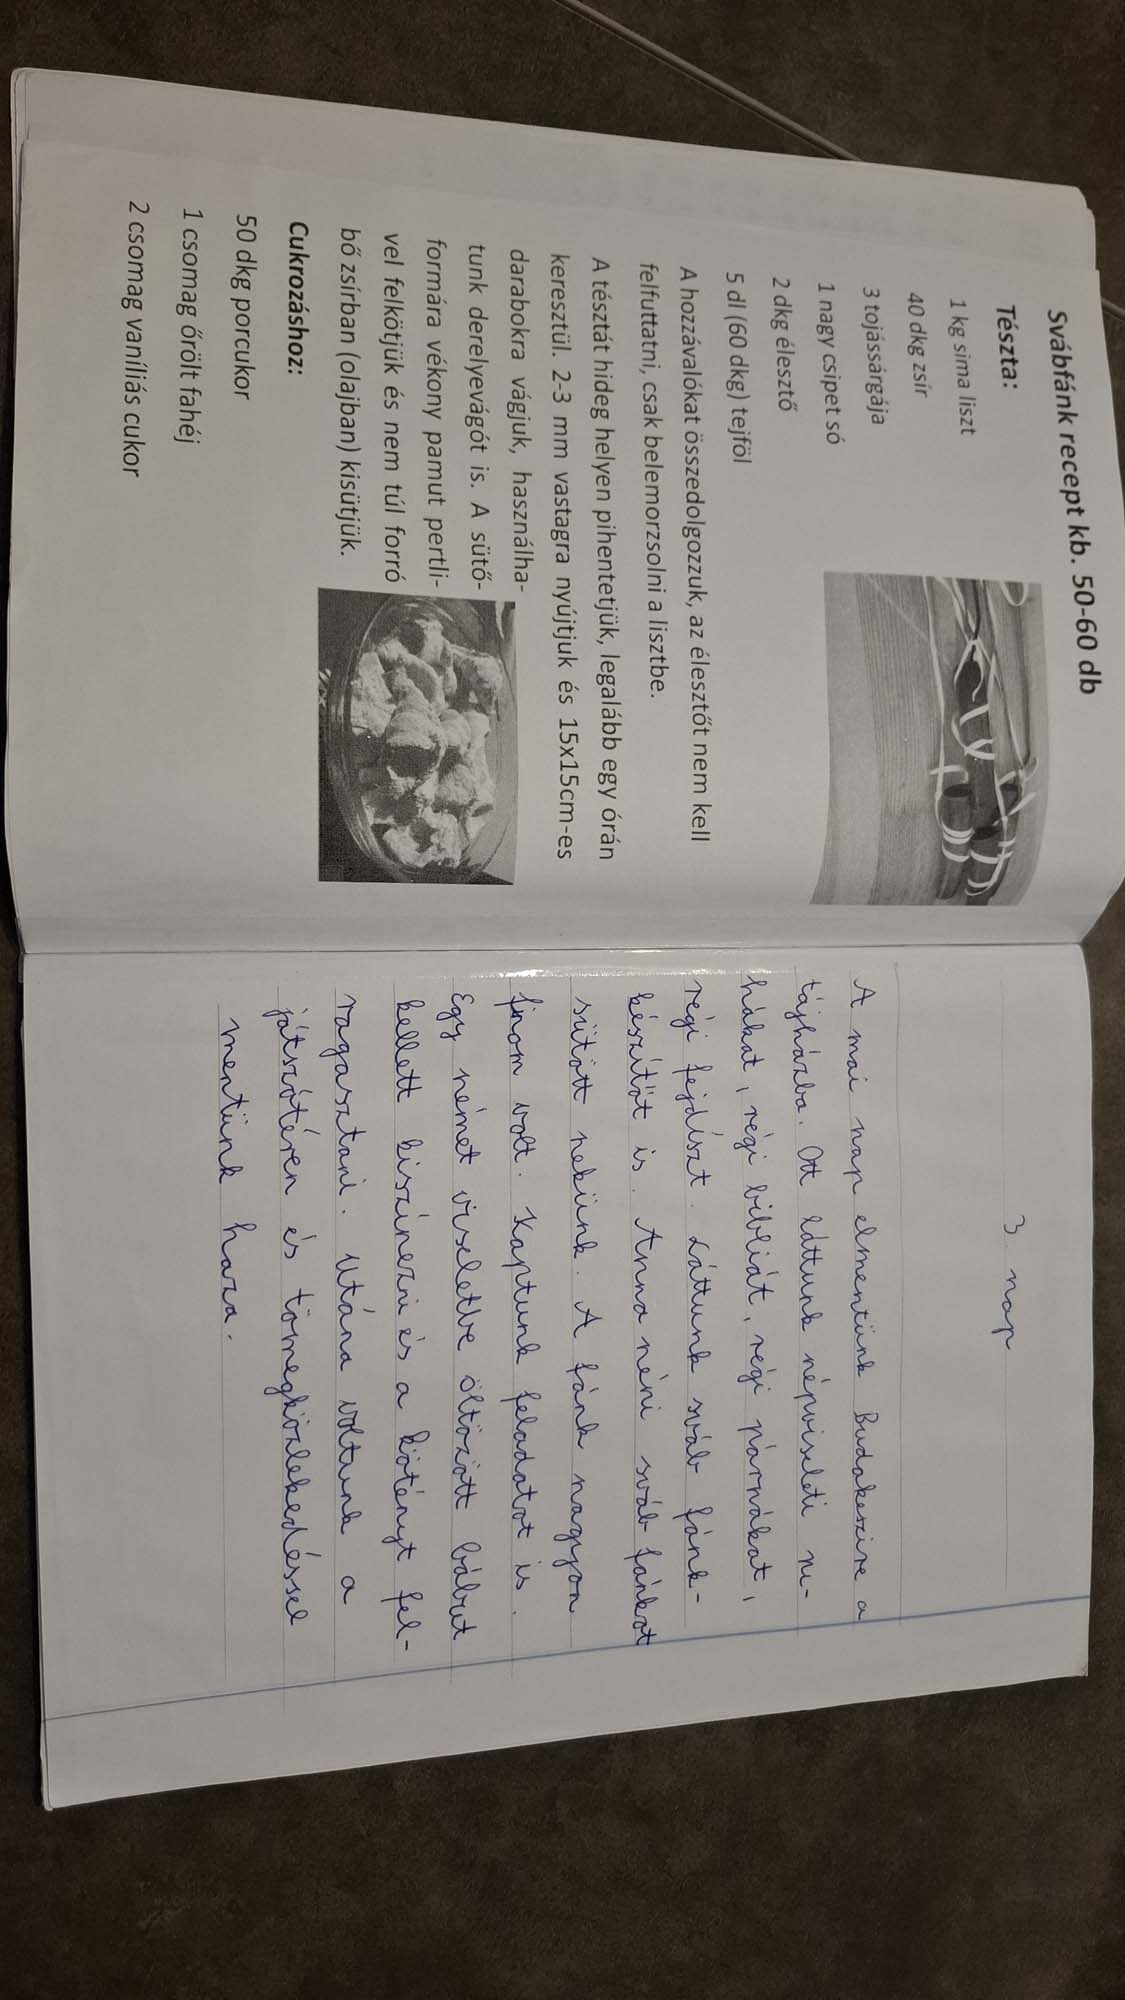 Svábfánk recept kb. 50-60 db
Tészta:
1 kg sima liszt
40 dkg zsír
3 tojássárgája
1 nagy csipet só
2 dkg élesztő
5 dl (60 dkg) tejföl
A hozzávalókat összedolgozzuk, az élesztőt nem kell
felfuttatni, csak belemorzsolni a lisztbe.
A tésztát hideg helyen pihentetjük, legalább egy órán
keresztül. 2-3 mm vastagra nyújtjuk és 15x15cm-es
darabokra vágjuk, használha-
tunk derelyevágót is. A sütő-
formára vékony pamut pertli-
vel felkötjük és nem túl forró
bő zsírban (olajban) kisütjük.
Cukrozáshoz:
50 dkg porcukor
1 csomag őrölt fahéj
2 csomag vaníliás cukor
3. nap
A mai nap elmentünk Budakeszire a
tájházba. Ott láttunk népviseleti ru-
hákat, régi bibliát, régi párnákat,
régi fejdíszt. Láttunk sváb fánk-
készítőt is. Anna néni sváb fánkot
sütött nekünk. A fánk nagyon
finom volt. Kaptunk feladatot is.
Egy német viseletbe öltözött bábut
kellett kiszínezni és a kötényt fel-
ragasztani. Utána voltunk a
játszótéren és tömegközlekedéssel
mentünk haza.